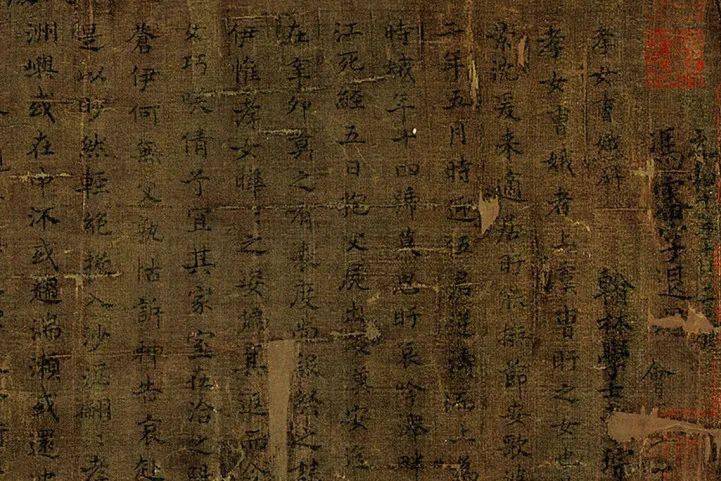 馮審字退
翰林學士
會
孝女曹娥碑
孝女曹娥者上虞曹盱之女也
景沉爰来適居盱能撫節安歌婆
二年五月時迎伍君逆濤而上為
時娥年十四號慕思盱哀吟澤畔
江死經五日抱父屍出以漢安迄
在辛卯莫之有表度尚設祭之誄
伊惟孝女曄〻之姿偏其返而令
巧咲倩兮宜其家室在洽之陽
蒼伊何無父孰怙訴神告哀赴
是以眇然輕絕投入沙泥翩〻孝
洲嶼或在中流或趨湍瀨或還波